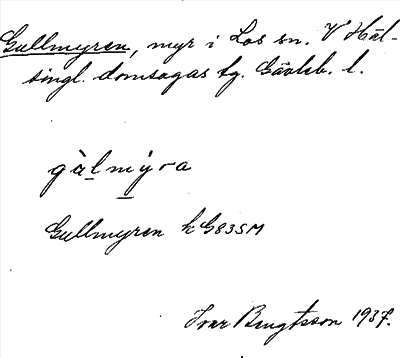 Gullmyren, myr i Los sn. V Häl-
singl. domsagas tg. Gävleb. l.
gàlmýra
Gullmyren k G83SM
Ivar Bengtsson 1937.